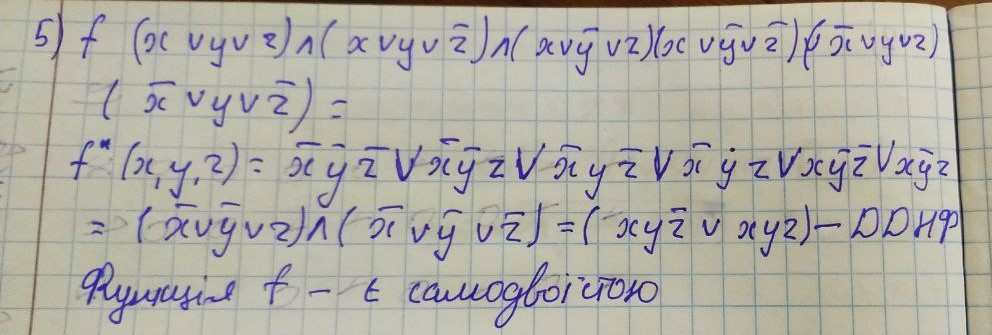 5) f (x ∨ y ∨ z) ∧ ( x ∨ y ∨ z̄ ) ∧ ( x ∨ ȳ ∨ z)(x ∨ ȳ ∨ z̄ ) ( x̄ ∨ y ∨ z)
( x̄ ∨ y ∨ z̄ ) =
f* (x, y, z) = x̄ ȳ z̄ ∨ x̄ ȳ z ∨ x̄ y z̄ ∨ x̄ y z ∨ x ȳ z̄ ∨ x ȳ z
= ( x̄ ∨ ȳ ∨ z) ∧ ( x̄ ∨ ȳ ∨ z̄ ) = ( x y z̄ ∨ x y z) – ДДНФ
Функція f – є самодвоїстою